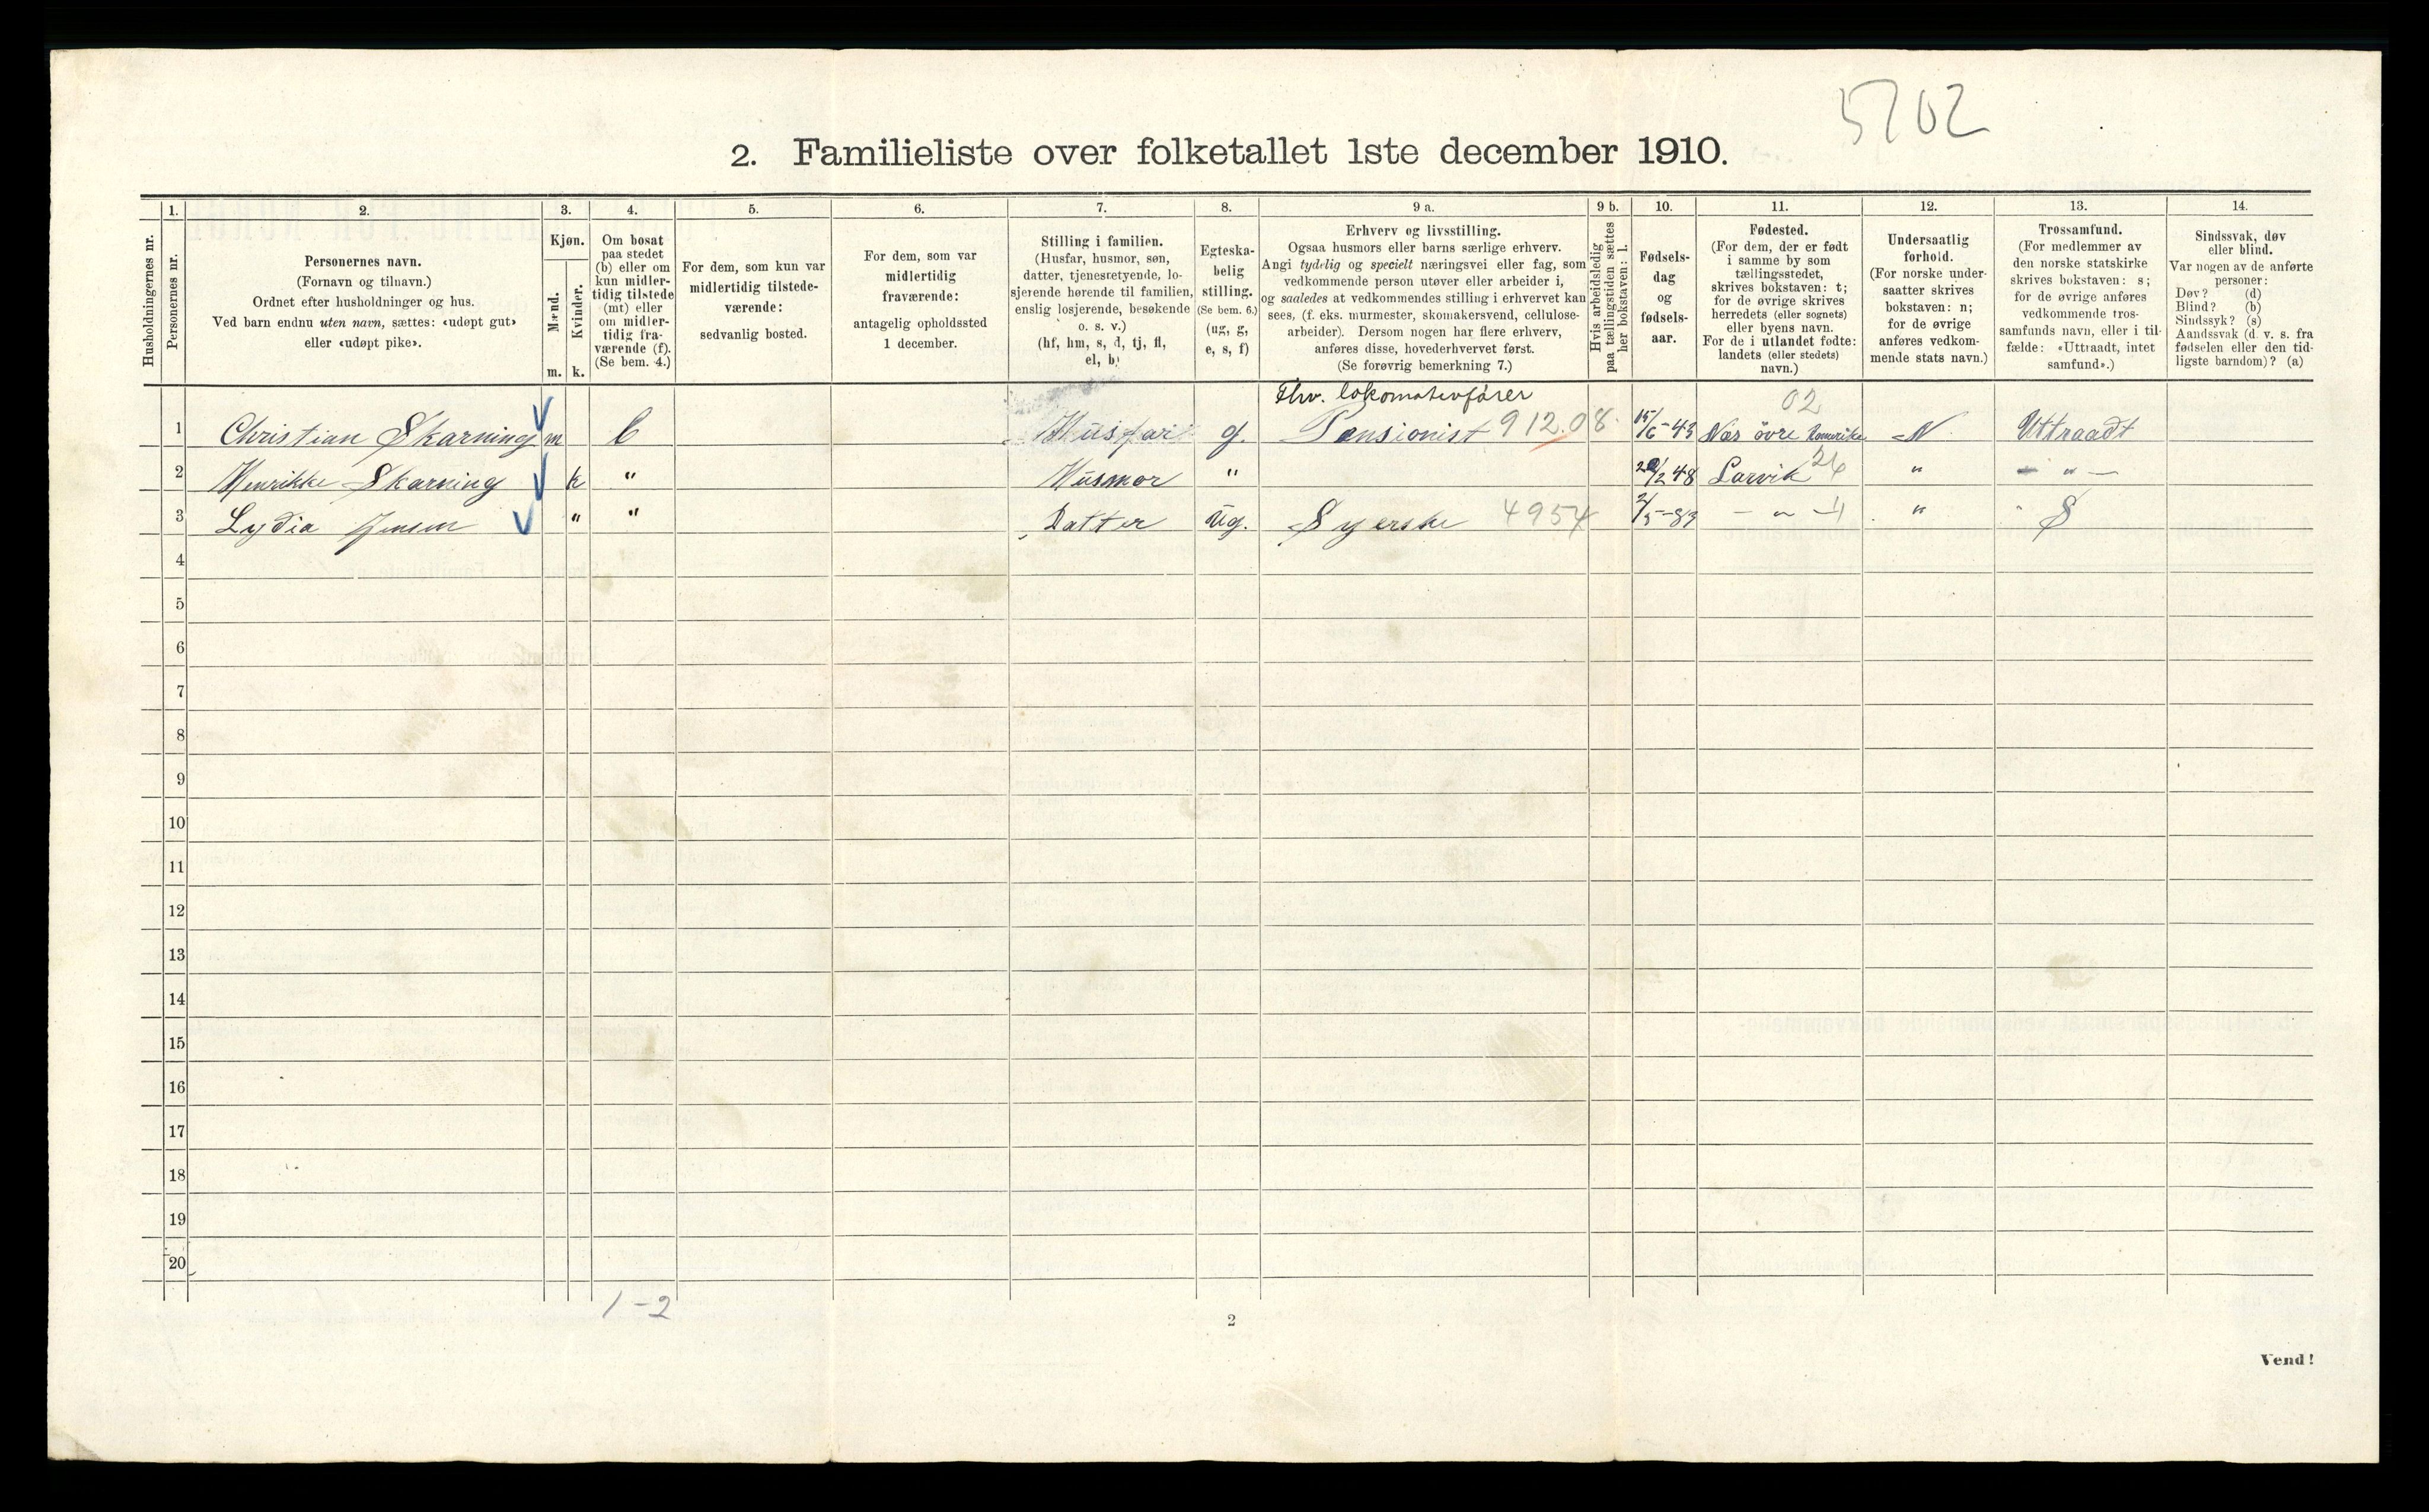 5702
2. Familieliste over folketallet 1ste december 1910.
Husholdningernes nr.
1.
Personernes nr.
2.
Personernes navn.
(Fornavn og tilnavn.)
Ordnet efter husholdninger og hus.
Ved barn endnu uten navn, sættes: «udøpt gut»
eller «udøpt pike».
3.
Kjøn.
Mænd.
Kvinder.
m. k.
4.
Om bosat
paa stedet
(b) eller om
kun midler-
tidig tilstede
(mt) eller
om midler-
tidig fra-
værende (f).
(Se bem. 4.)
5.
For dem, som kun var
midlertidig tilstede-
værende:
sedvanlig bosted.
6.
For dem, som var
midlertidig
fraværende:
antagelig opholdssted
1 december.
7.
Stilling i familien.
(Husfar, husmor, søn,
datter, tjenestetyende, lo-
sjerende hørende til familien,
enslig losjerende, besøkende
o. s. v.)
(hf, hm, s, d, tj, fl,
el, b)
8.
Egteska-
belig
stilling.
(Se bem. 6.)
(ug, g,
e, s, f)
9 a.
Erhverv og livsstilling.
Ogsaa husmors eller barns særlige erhverv.
Angi tydelig og specielt næringsvei eller fag, som
vedkommende person utøver eller arbeider i,
og saaledes at vedkommendes stilling i erhvervet kan
sees, (f. eks. murmester, skomakersvend, cellulose-
arbeider). Dersom nogen har flere erhverv,
anføres disse, hovederhvervet først.
(Se forøvrig bemerkning 7.)
9 b.
Hvis arbeidsledig
paa tællingstiden sættes
her bokstaven: l.
10.
Fødsels-
dag
og
fødsels-
aar.
11.
Fødested.
(For dem, der er født
i samme by som
tællingsstedet,
skrives bokstaven: t;
for de øvrige skrives
herredets (eller sognets)
eller byens navn.
For de i utlandet fødte:
landets (eller stedets)
navn.)
12.
Undersaatlig
forhold.
(For norske under-
saatter skrives
bokstaven: n;
for de øvrige
anføres vedkom-
mende stats navn.)
13.
Trossamfund.
(For medlemmer av
den norske statskirke
skrives bokstaven: s;
for de øvrige anføres
vedkommende tros-
samfunds navn, eller i til-
fælde: «Uttraadt, intet
samfund».)
14.
Sindssvak, døv
eller blind.
Var nogen av de anførte
personer:
Døv? (d)
Blind? (b)
Sindssyk? (s)
Aandssvak (d. v. s. fra
fødselen eller den tid-
ligste barndom)? (a)
Fhv. lokomotivfører 02
1 Christian Skarning m b Husfar g. Pensionist 912.08 15/6-43 Næs övre Romerike N Uttraadt
2 Henrikke Skarning k " Husmor " 20/2 48 Larvik 26 " " —
3 Lydia Jensen " " Datter ug. Syerske 4954 2/5-83 - " - " S
4
5
6
7
8
9
10
11
12
13
14
15
16
17
18
19
20
1-2
2
Vend!